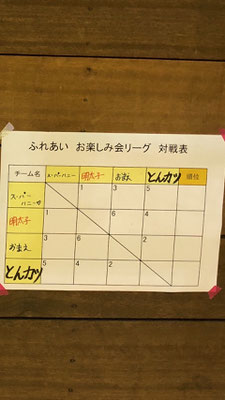 ふれあい お楽しみ会リーグ 対戦表
チーム名 スーパーハニー 明太子 おまえ とんカツ 順位
スーパーハニー 1 3 5
明太子 1 6 4
おまえ 3 6 2
とんカツ 5 4 2